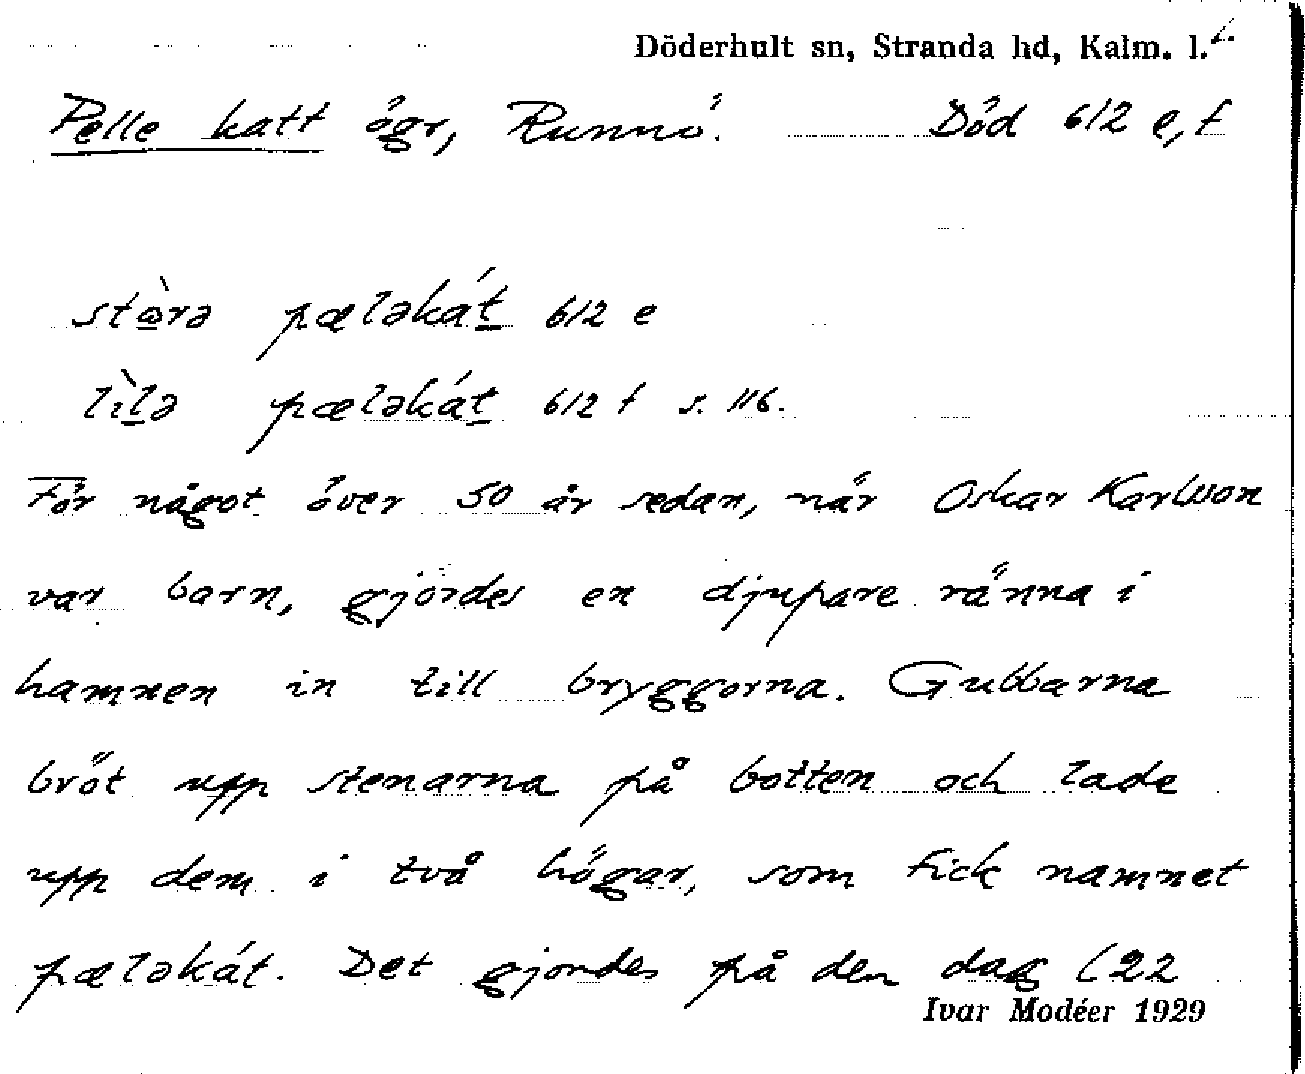 Döderhult sn, Stranda hd, Kalm. l.
Pelle katt ögr, Runnö. Död 612 e, f
stòrə pæləkát 612 e
lìlə pæləkát 612 f s. 116.
För något över 50 år sedan, när Oskar Karlsson
var barn, gjordes en djupare ränna i
hamnen in till bryggorna. Gubbarna
bröt upp stenarna på botten och lade
upp dem i två högar, som fick namnet
pæləkát. Det gjordes på den dag (22
Ivar Modéer 1929